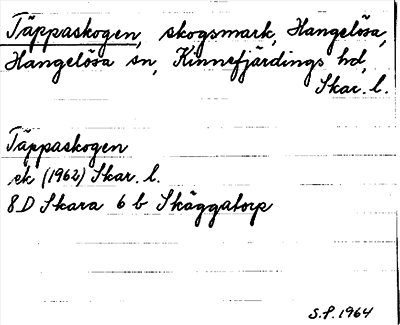 Täppaskogen, skogsmark, Hangelösa,
Hangelösa sn, Kinnefjärdings hd,
Skar. l.
Täppaskogen
ek (1962) Skar. l.
8D Skara 6 b Skäggatorp
S.P. 1964